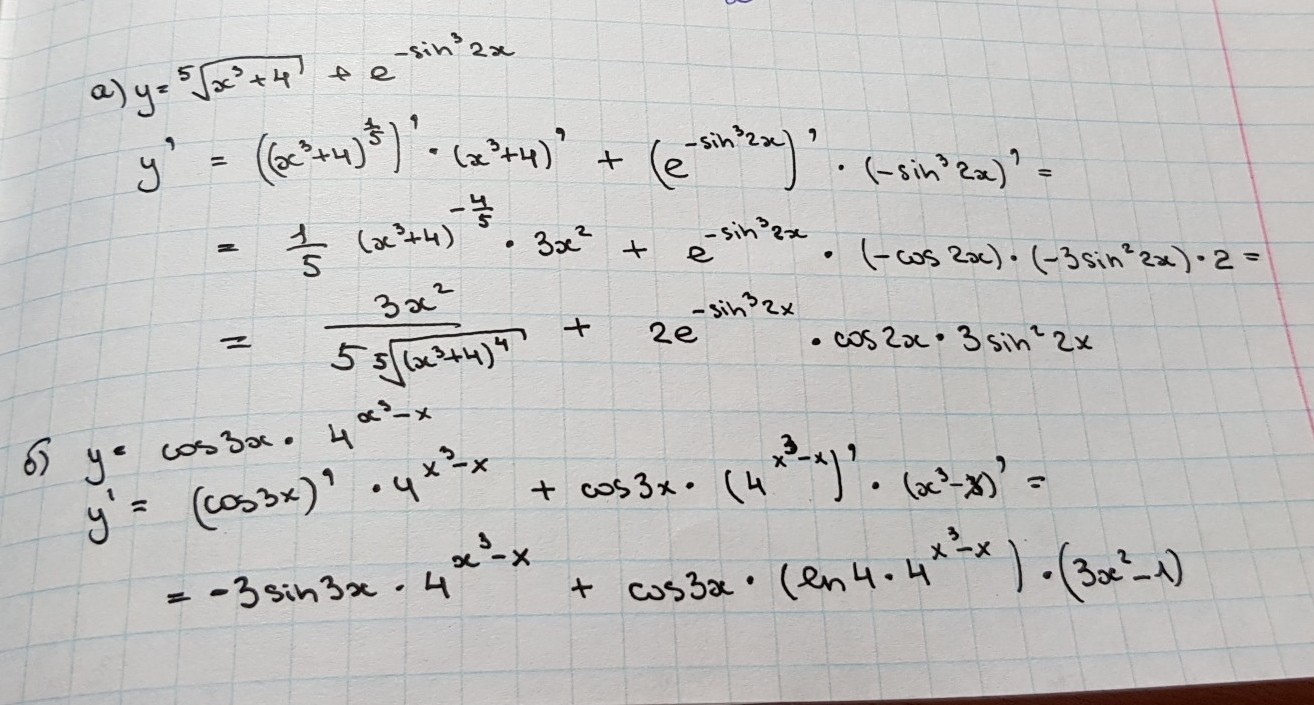 а) y = ⁵√(x³+4) + e^(-sin³2x)
y' = ((x³+4)^(1/5))' · (x³+4)' + (e^(-sin³2x))' · (-sin³2x)' =
= 1/5 (x³+4)^(-4/5) · 3x² + e^(-sin³2x) · (-cos2x) · (-3sin²2x) · 2 =
= 3x²/(5 ⁵√((x³+4)⁴)) + 2e^(-sin³2x) · cos2x · 3sin²2x
б) y = cos3x · 4^(x³-x)
y' = (cos3x)' · 4^(x³-x) + cos3x · (4^(x³-x))' · (x³-x)' =
= -3sin3x · 4^(x³-x) + cos3x · (ln4 · 4^(x³-x)) · (3x²-1)